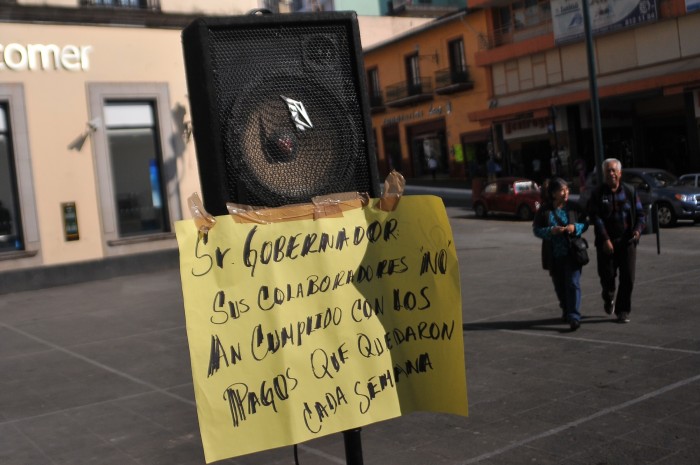 comer
Sr. GOBERNADOR
SUS COLABORADORES "NO"
AN CUMPLIDO CON LOS
PAGOS QUE QUEDARON
CADA SEMANA